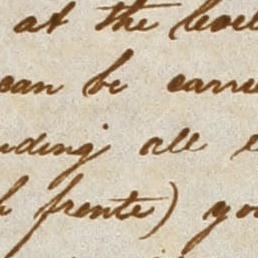 at the level
can be carrie
uding all
frente) yo